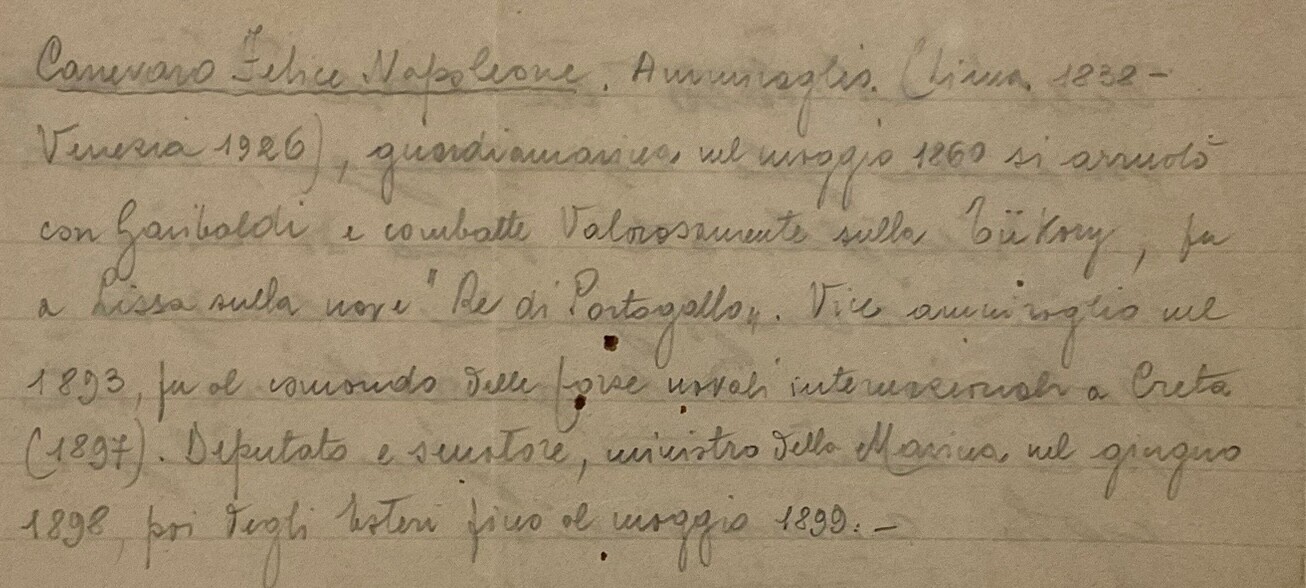 Canevaro Felice Napoleone. Ammiraglio. (Lima 1838 -
Venezia 1926), guardiamarina nel maggio 1860 si arruolò
con Garibaldi e combatte Valorosamente sulla Tüköry, fu
a Lissa sulla nave "Re di Portogallo„. Vice ammiraglio nel
1893, fu al comando delle forze navali internazionali a Creta
(1897). Deputato e senatore, ministro della Marina nel giugno
1898, poi degli Esteri fino al maggio 1899. -